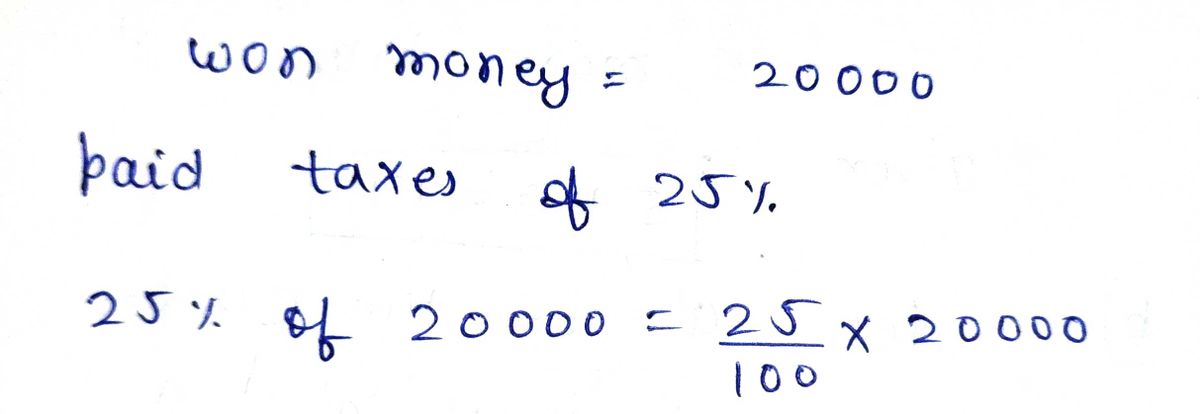 won money = 20000
paid taxes of 25%
25% of 20000 = 25/100 x 20000